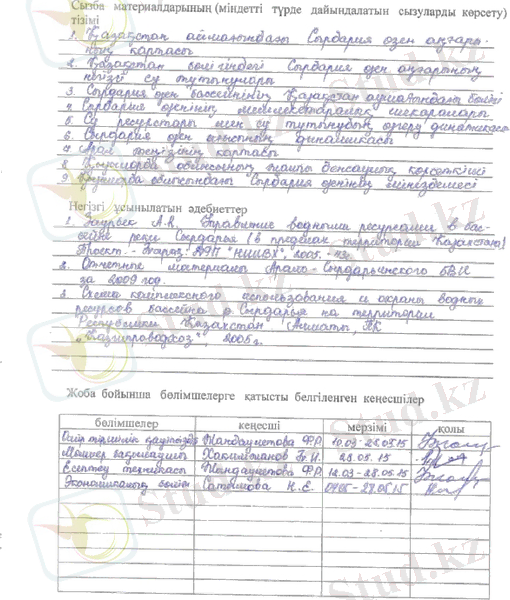 Сызба материалдарының (міндетті түрде дайындалатын сызуларды көрсету)
тізімі
1. Қазақстан аймағындағы Сырдария өзен аңғары-
ның картасы
2. Қазақстан бөлігіндегі Сырдария өзен аңғарының
негізгі су тұтынулары
3. Сырдария өзен бассейнінің Қазақстан аумағындағы бөлігі
4. Сырдария өзенінің мемлекетаралық шекаралары
5. Су ресурстары мен су тұтынудың өзгеру динамикасы
6. Сырдария өзен ағыстың динамикасы
7. Арал теңізінің картасы
8. Қызылорда облысының жалпы денсаулық көрсеткіші
9. Қызылорда облысындағы Сырдария өзенінің
Негізгі ұсынылатын әдебиеттер
1. Заурбек А.К. Управление водными ресурсами в бас-
сейне реки Сырдарья (в пределах территории Казахстана)
Проект. - Тараз: "НИИВХ", 2005. -
2. Отчетные материалы Арало-Сырдарьинского БВИ
за 2009 год.
3. Схема комплексного использования и охраны водных
ресурсов бассейна р. Сырдарья на территории
Республики Казахстан (Алматы, ПК
"Казгипроводхоз", 2005 г.
Жоба бойынша бөлімшелерге қатысты белгіленген кеңесшілер
бөлімшелер кеңесші мерзімі қолы
Өмір тіршілік қауіпсіздігі Жандаулетова Ф.Р. 10.03-28.05.15
Хакимжанов Т.Е. 28.05.15
Есептеу техникасы Жандаулетова Ф.Р. 12.03-28.05.15
Экономикалық бөлім 28.05.15
Stud.kz
Stud.kz
Stud.kz
Stud.kz